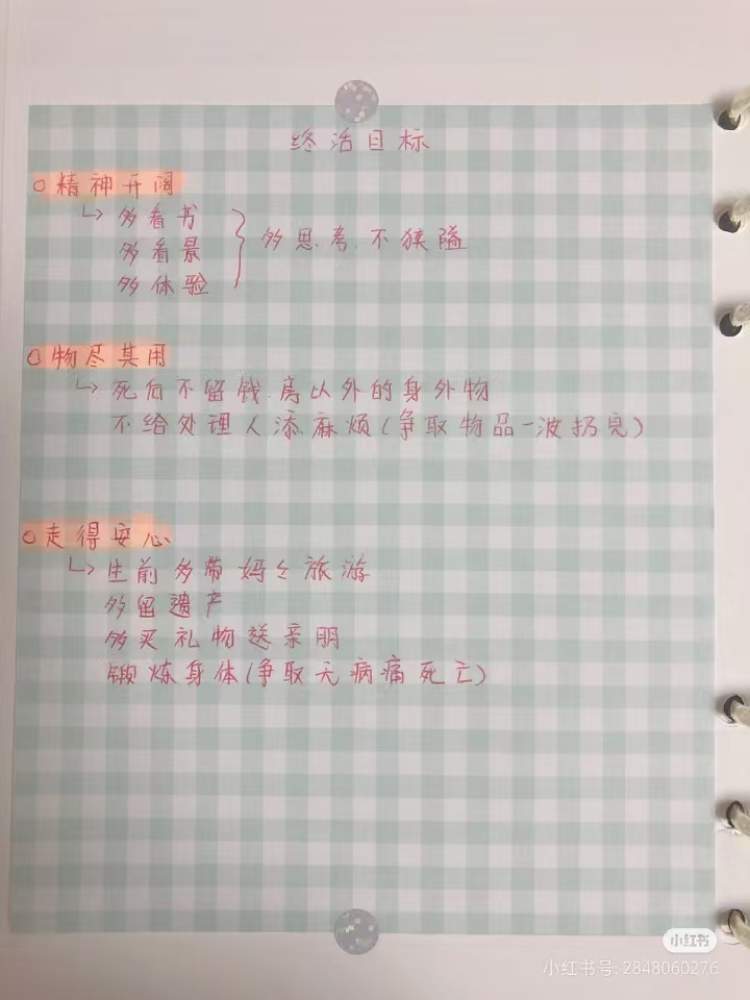 终治目标
○精神开阔
↳多看书
多看景
多体验
多思考、不狭隘
○物尽其用
↳死后不留钱、房以外的身外物
不给处理人添麻烦(争取物品一波扔完)
○走得安心
↳生前多带妈々旅游
多留遗产
多买礼物送亲朋
锻炼身体(争取无病痛死亡)
小红书
小红书号: 2848060276